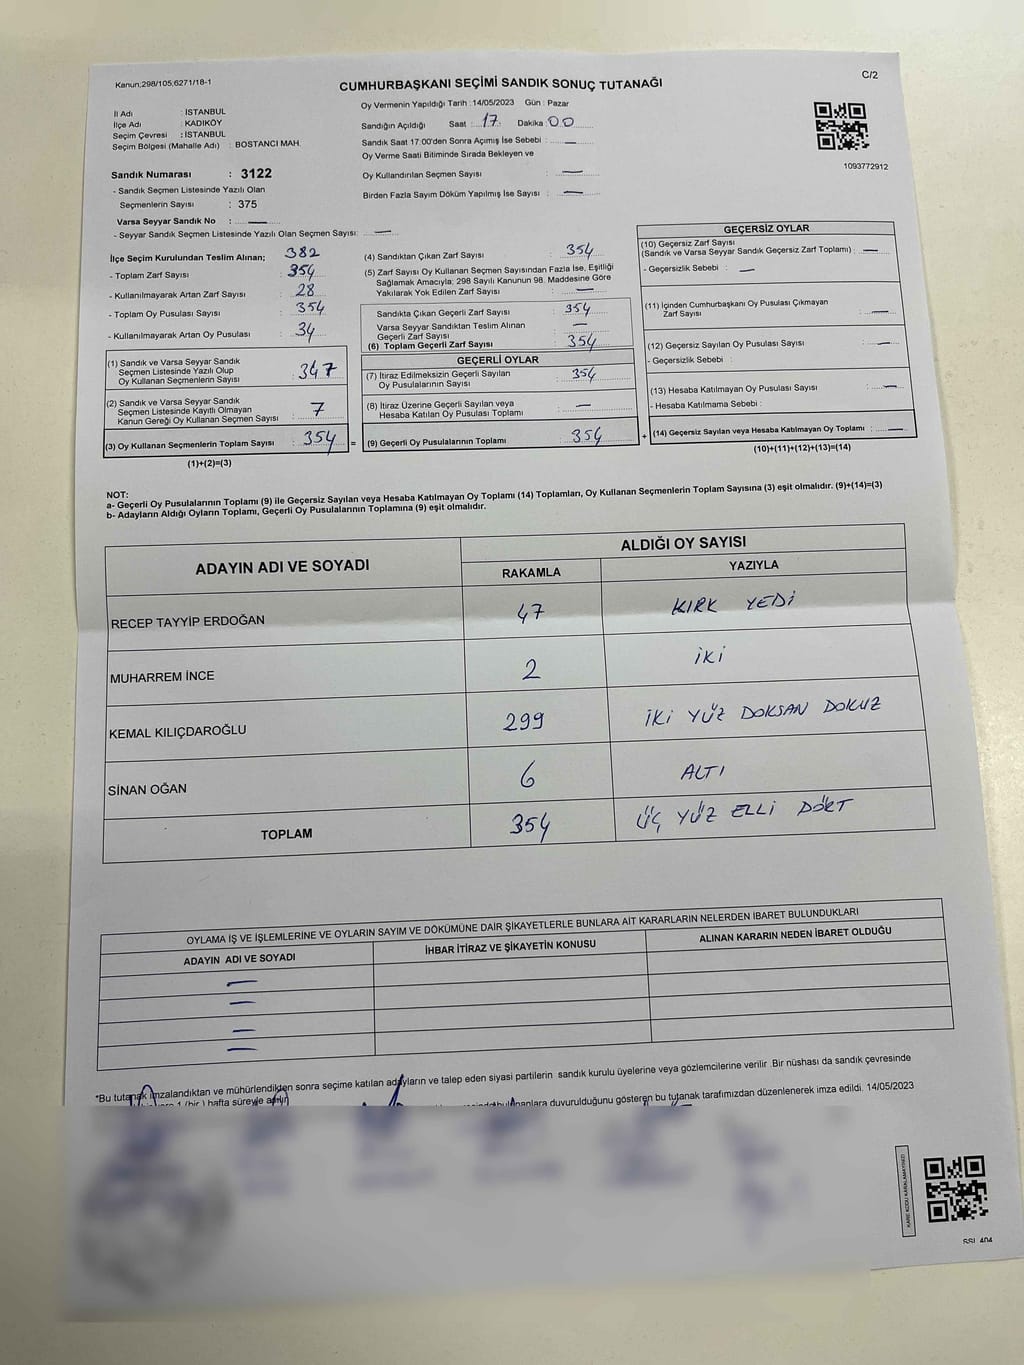 Kanun;298/105;6271/18-1
CUMHURBAŞKANI SEÇİMİ SANDIK SONUÇ TUTANAĞI
C/2
İl Adı : İSTANBUL
İlçe Adı : KADIKÖY
Seçim Çevresi : İSTANBUL
Seçim Bölgesi (Mahalle Adı) : BOSTANCI MAH.
Sandık Numarası : 3122
- Sandık Seçmen Listesinde Yazılı Olan
Seçmenlerin Sayısı : 375
Varsa Seyyar Sandık No : —
- Seyyar Sandık Seçmen Listesinde Yazılı Olan Seçmen Sayısı: —
Oy Vermenin Yapıldığı Tarih : 14/05/2023 Gün : Pazar
Sandığın Açıldığı Saat : 17 Dakika : 00
Sandık Saat 17:00'den Sonra Açımış İse Sebebi : —
Oy Verme Saati Bitiminde Sırada Bekleyen ve
Oy Kullandırılan Seçmen Sayısı : —
Birden Fazla Sayım Döküm Yapılmış İse Sayısı : —
1093772912
İlçe Seçim Kurulundan Teslim Alınan; 382
- Toplam Zarf Sayısı : 354
- Kullanılmayarak Artan Zarf Sayısı : 28
- Toplam Oy Pusulası Sayısı : 354
- Kullanılmayarak Artan Oy Pusulası : 34
(1) Sandık ve Varsa Seyyar Sandık
Seçmen Listesinde Yazılı Olup
Oy Kullanan Seçmenlerin Sayısı : 347
(2) Sandık ve Varsa Seyyar Sandık
Seçmen Listesinde Kayıtlı Olmayan
Kanun Gereği Oy Kullanan Seçmen Sayısı : 7
(3) Oy Kullanan Seçmenlerin Toplam Sayısı : 354 =
(1)+(2)=(3)
(4) Sandıktan Çıkan Zarf Sayısı : 354
(5) Zarf Sayısı Oy Kullanan Seçmen Sayısından Fazla İse, Eşitliği
Sağlamak Amacıyla; 298 Sayılı Kanunun 98. Maddesine Göre
Yakılarak Yok Edilen Zarf Sayısı : —
Sandıkta Çıkan Geçerli Zarf Sayısı : 354
Varsa Seyyar Sandıktan Teslim Alınan
Geçerli Zarf Sayısı : —
(6) Toplam Geçerli Zarf Sayısı : 354
GEÇERLİ OYLAR
(7) İtiraz Edilmeksizin Geçerli Sayılan
Oy Pusulalarının Sayısı : 354
(8) İtiraz Üzerine Geçerli Sayılan veya
Hesaba Katılan Oy Pusulası Toplamı : —
(9) Geçerli Oy Pusulalarının Toplamı : 354 +
GEÇERSİZ OYLAR
(10) Geçersiz Zarf Sayısı
(Sandık ve Varsa Seyyar Sandık Geçersiz Zarf Toplamı) : —
- Geçersizlik Sebebi : —
(11) İçinden Cumhurbaşkanı Oy Pusulası Çıkmayan
Zarf Sayısı : —
(12) Geçersiz Sayılan Oy Pusulası Sayısı : —
- Geçersizlik Sebebi :
(13) Hesaba Katılmayan Oy Pusulası Sayısı : —
- Hesaba Katılmama Sebebi :
(14) Geçersiz Sayılan veya Hesaba Katılmayan Oy Toplamı : —
(10)+(11)+(12)+(13)=(14)
NOT:
a- Geçerli Oy Pusulalarının Toplamı (9) ile Geçersiz Sayılan veya Hesaba Katılmayan Oy Toplamı (14) Toplamları, Oy Kullanan Seçmenlerin Toplam Sayısına (3) eşit olmalıdır. (9)+(14)=(3)
b- Adayların Aldığı Oyların Toplamı, Geçerli Oy Pusulalarının Toplamına (9) eşit olmalıdır.
ADAYIN ADI VE SOYADI
ALDIĞI OY SAYISI
RAKAMLA YAZIYLA
RECEP TAYYİP ERDOĞAN 47 KIRK YEDİ
MUHARREM İNCE 2 İKİ
KEMAL KILIÇDAROĞLU 299 İKİ YÜZ DOKSAN DOKUZ
SİNAN OĞAN 6 ALTI
TOPLAM 354 ÜÇ YÜZ ELLİ DÖRT
OYLAMA İŞ VE İŞLEMLERİNE VE OYLARIN SAYIM VE DÖKÜMÜNE DAİR ŞİKAYETLERLE BUNLARA AİT KARARLARIN NELERDEN İBARET BULUNDUKLARI
ADAYIN ADI VE SOYADI İHBAR İTİRAZ VE ŞİKAYETİN KONUSU ALINAN KARARIN NEDEN İBARET OLDUĞU
—
—
—
—
*Bu tutanak imzalandıktan ve mühürlendikten sonra seçime katılan adayların ve talep eden siyasi partilerin sandık kurulu üyelerine veya gözlemcilerine verilir. Bir nüshası da sandık çevresinde
1 (bir ) hafta süreyle asılır bulunanlara duyurulduğunu gösteren bu tutanak tarafımızdan düzenlenerek imza edildi. 14/05/2023
KARE KODU KARALAMAYINIZ!
SSI 404